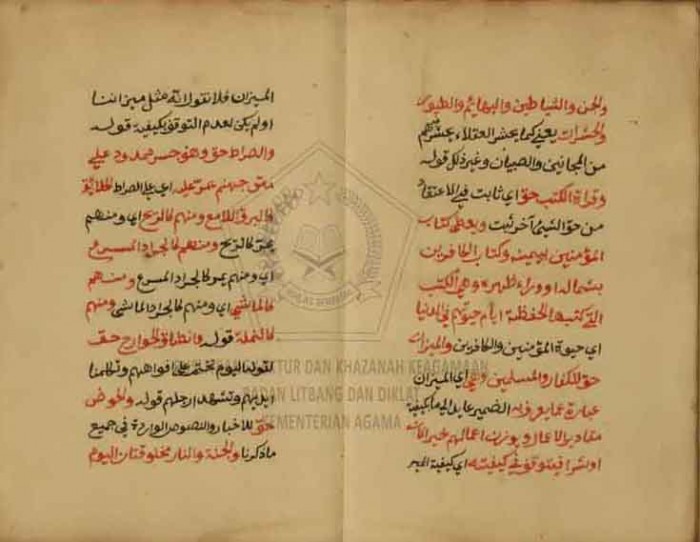 والجن والشياطين والبهايم والطيور
والحشرات يعني كما يحشر العقلاء يحشر هم
من المجانين والصبيان وغير ذلك قوله
وقراة الكتب حق اي ثابت في الاعتقاد
من حق الشيء آخر ثبت ويعطى كتاب
المؤمنين بيمينه وكتاب الكافرين
بشماله او وراء ظهره وهي الكتب
التي كتبها الحفظة ايام حيوتهم في الدنيا
اي حيوة المؤمنين والكافرين والميزان
حق للكفار والمسلمين وهي اي الميزان
عبارة عما يعرف به الضمير عايد الى ما كيفية
مقادير الاعمال ويوزن اعمالهم خيرا كان
او شرا فيتوقف في كيفيته اي كيفية الميز
الميزان فلا نقول انه مثل ميزاننا
او لم يكن لعدم التوقف بكيفية قوله
والصراط حق وهو جسر ممدود على
متن جهنم يمر عليه اي على الصراط الخلائق
كالبرق اللامع ومنهم كالريح اي ومنهم
يمر كالريح ومنهم كالجراد المسرع
اي ومنهم يمر كالجراد المسرع ومنهم
كالماشي اي ومنهم كالجراد الماشي ومنهم
كالنملة قوله وانطاق الجوارح حق
لقوله اليوم نختم على افواههم وتكلمنا
ايديهم وتشهد ارجلهم قوله والحوض
حق للاخبار والنصوص الواردة في جميع
ما ذكرنا والجنة والنار مخلوقتان اليوم
IKHLAS BERAMAL
PUSLITBANG LEKTUR DAN KHAZANAH KEAGAMAAN
BADAN LITBANG DAN DIKLAT
KEMENTERIAN AGAMA